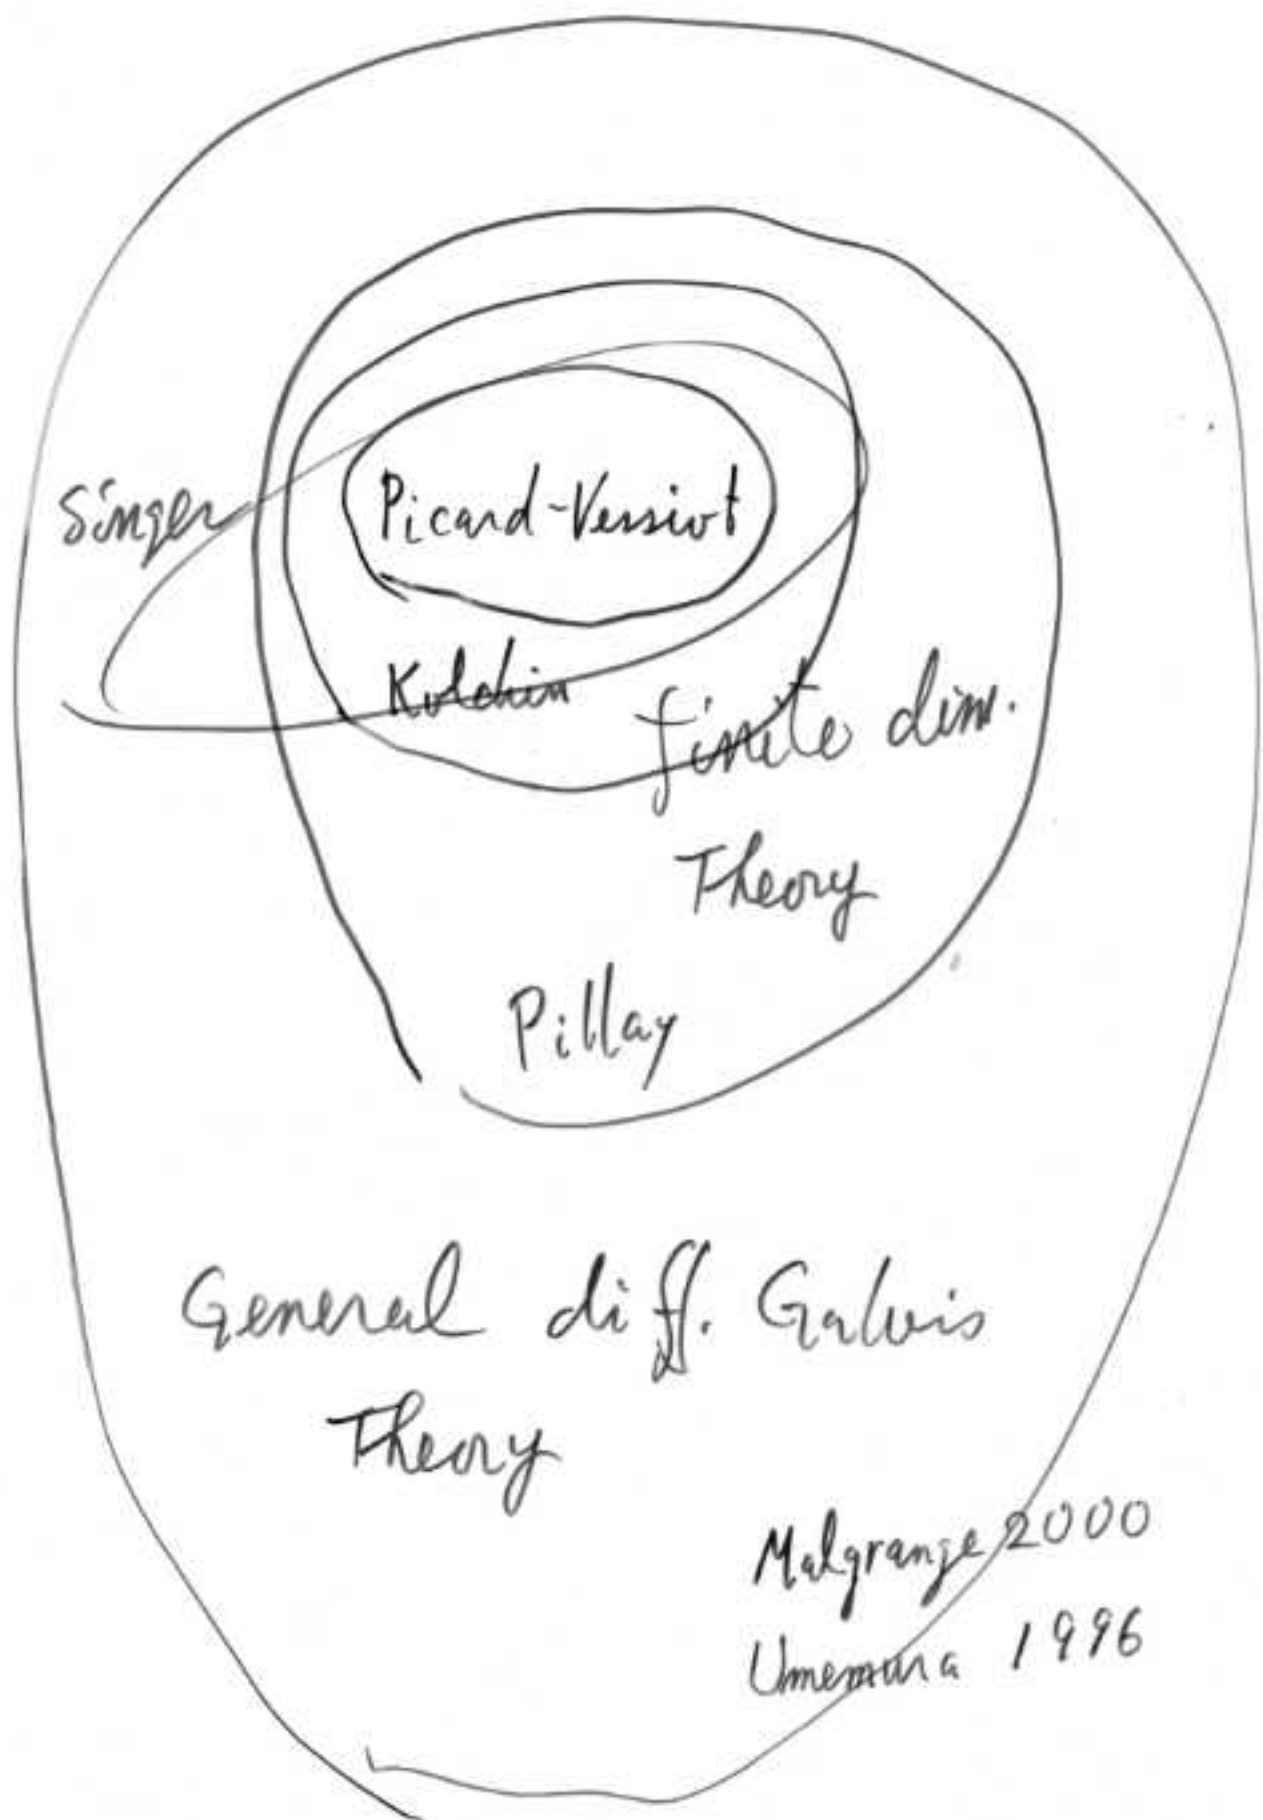 Singer
Picard-Vessiot
Kolchin
finite dim.
Theory
Pillay
General diff. Galois
Theory
Malgrange 2000
Umemura 1996